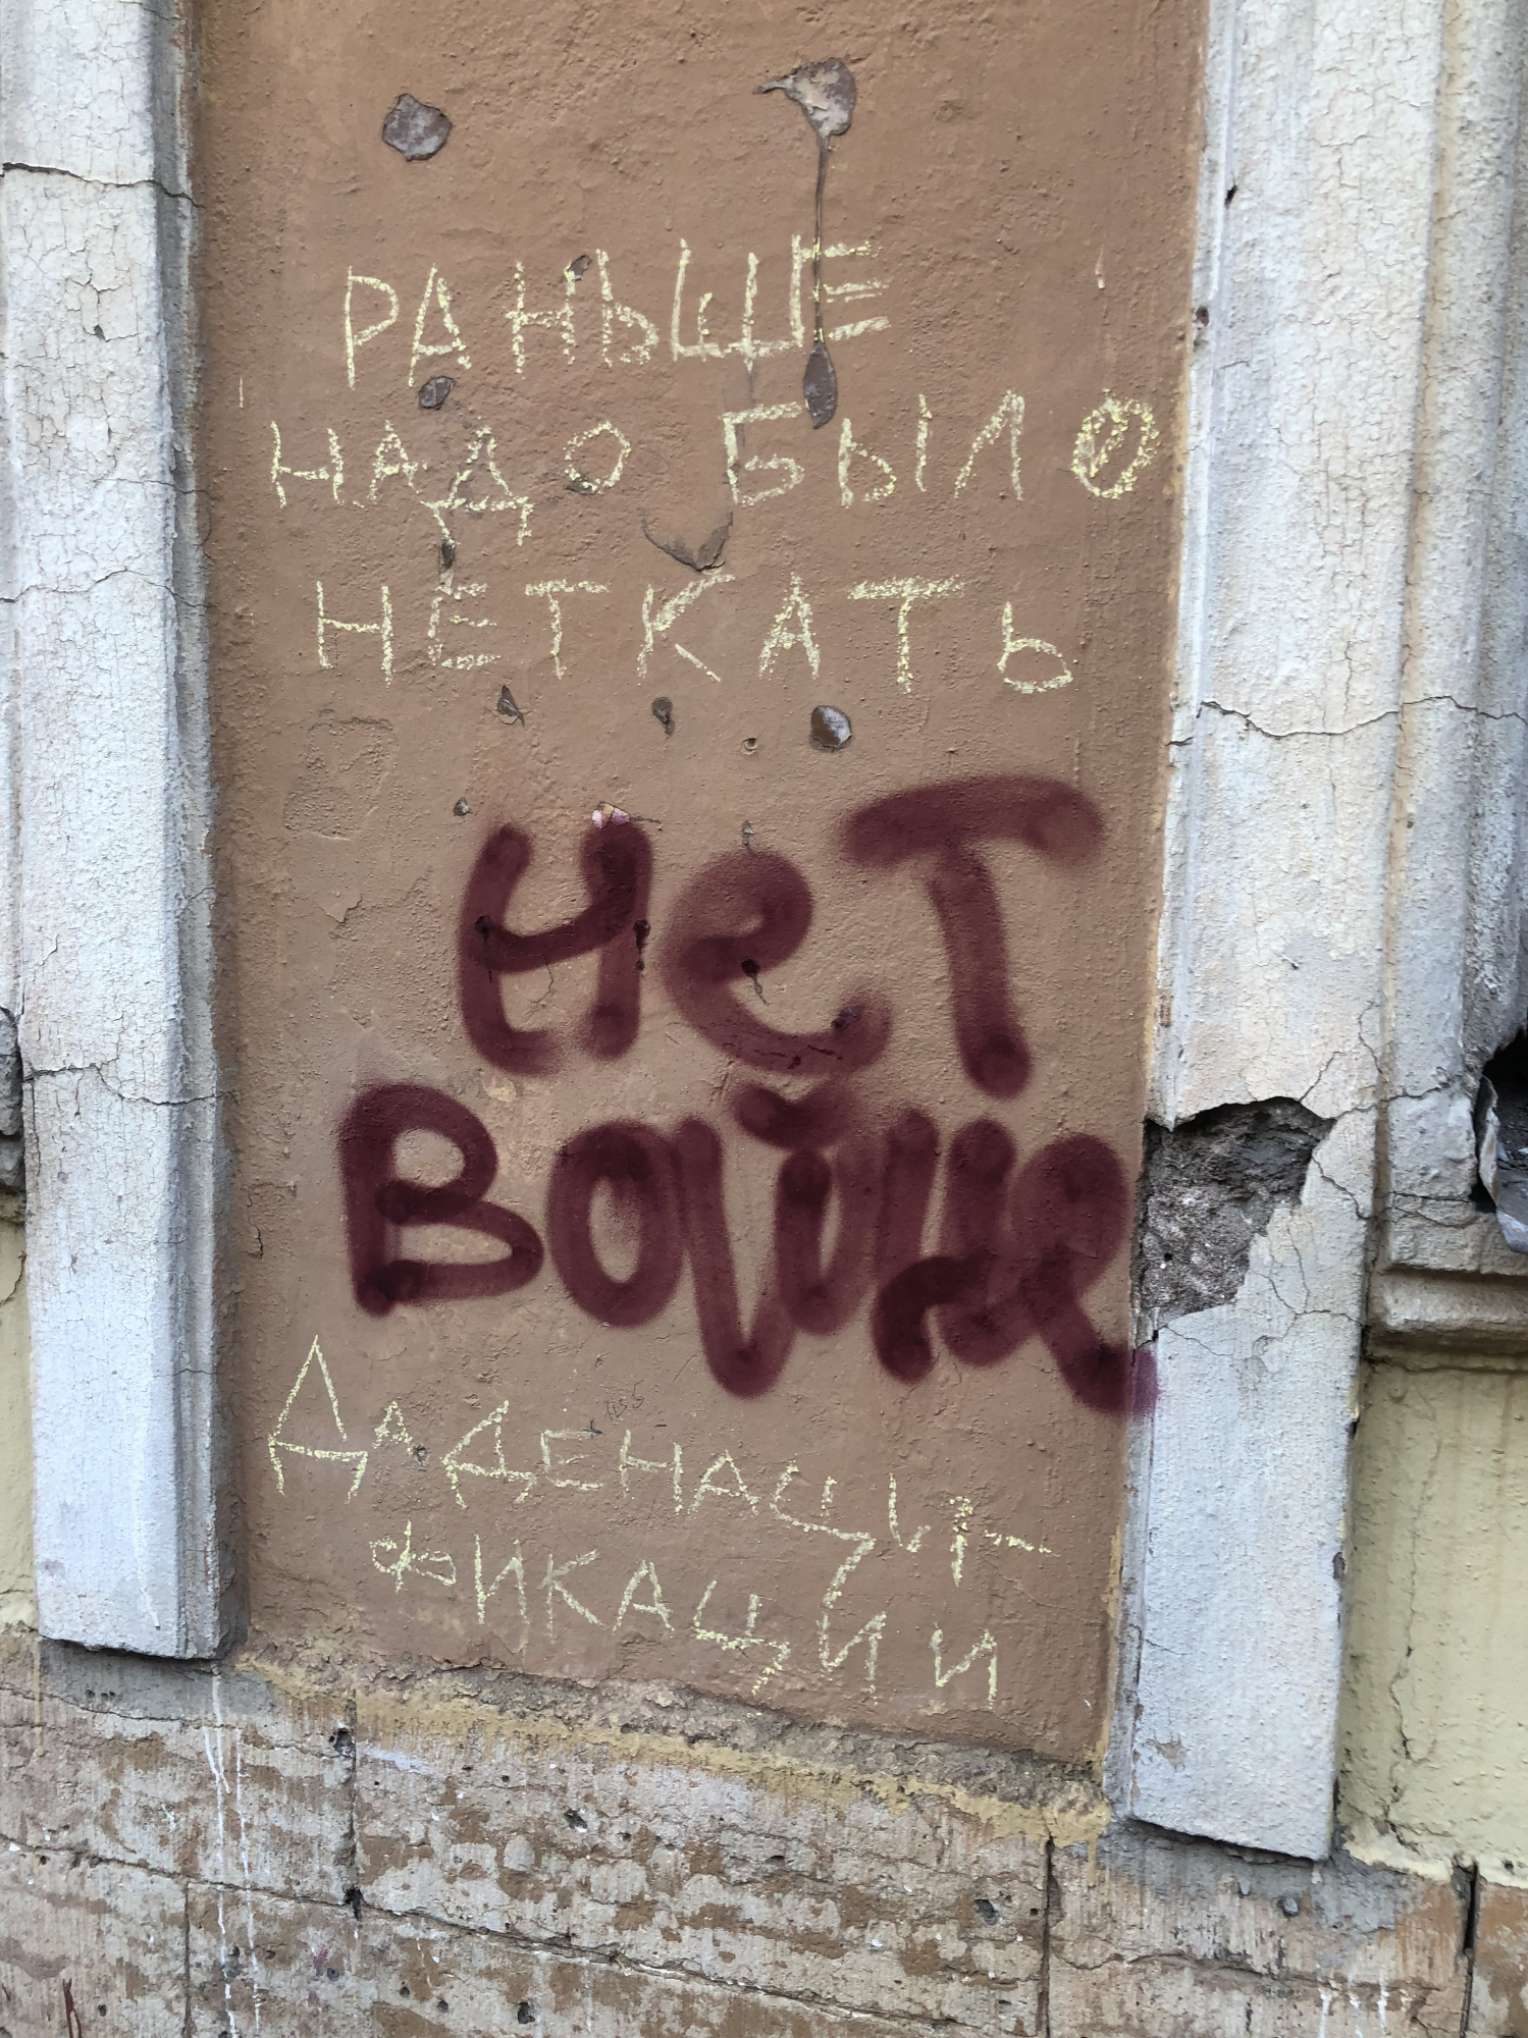 РАНЬШЕ
НАДО БЫЛО
НЕТКАТЬ
НеТ
Войне
ДА ДЕНАЦИ-
ФИКАЦИИ